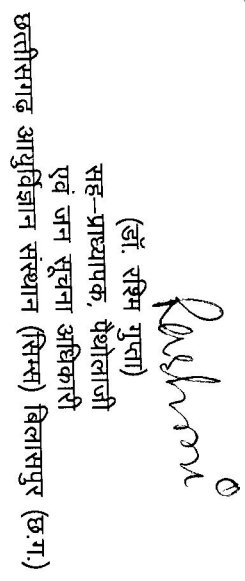 Rashmi
(डॉ. रश्मि गुप्ता)
सह-प्राध्यापक, पैथोलाजी
एवं जन सूचना अधिकारी
छत्तीसगढ़ आयुर्विज्ञान संस्थान (सिम्स) बिलासपुर (छ.ग.)